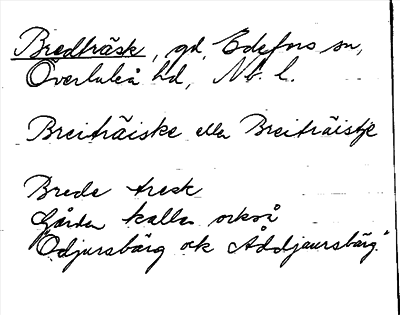 Bredträsk, gd, Edefors sn,
Överluleå hd, Nb. l.
Breiträiske eller Breiträistje
Brede tresk
Gården kallas också
"Ödjursbärg ock Åddjaursbärg."